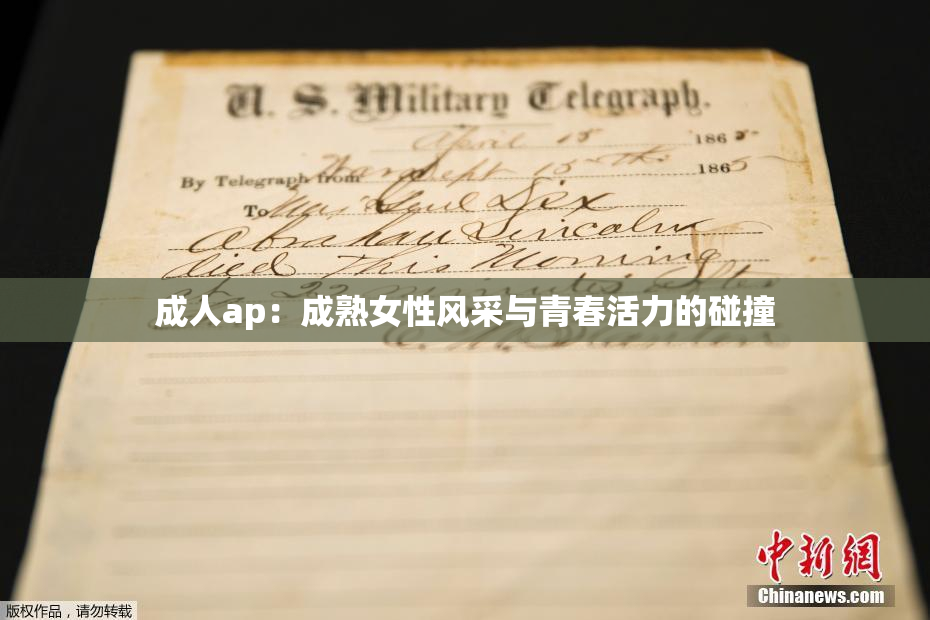 U. S. Military Telegraph.
April 15 1865
By Telegraph from War Dept 15th 1865
To Maj Genl Dix
Abraham Lincoln
died This Morning
at 22 minutes after
成人ap：成熟女性风采与青春活力的碰撞
E. M. Stanton
中新網
Chinanews.com
版权作品，请勿转载